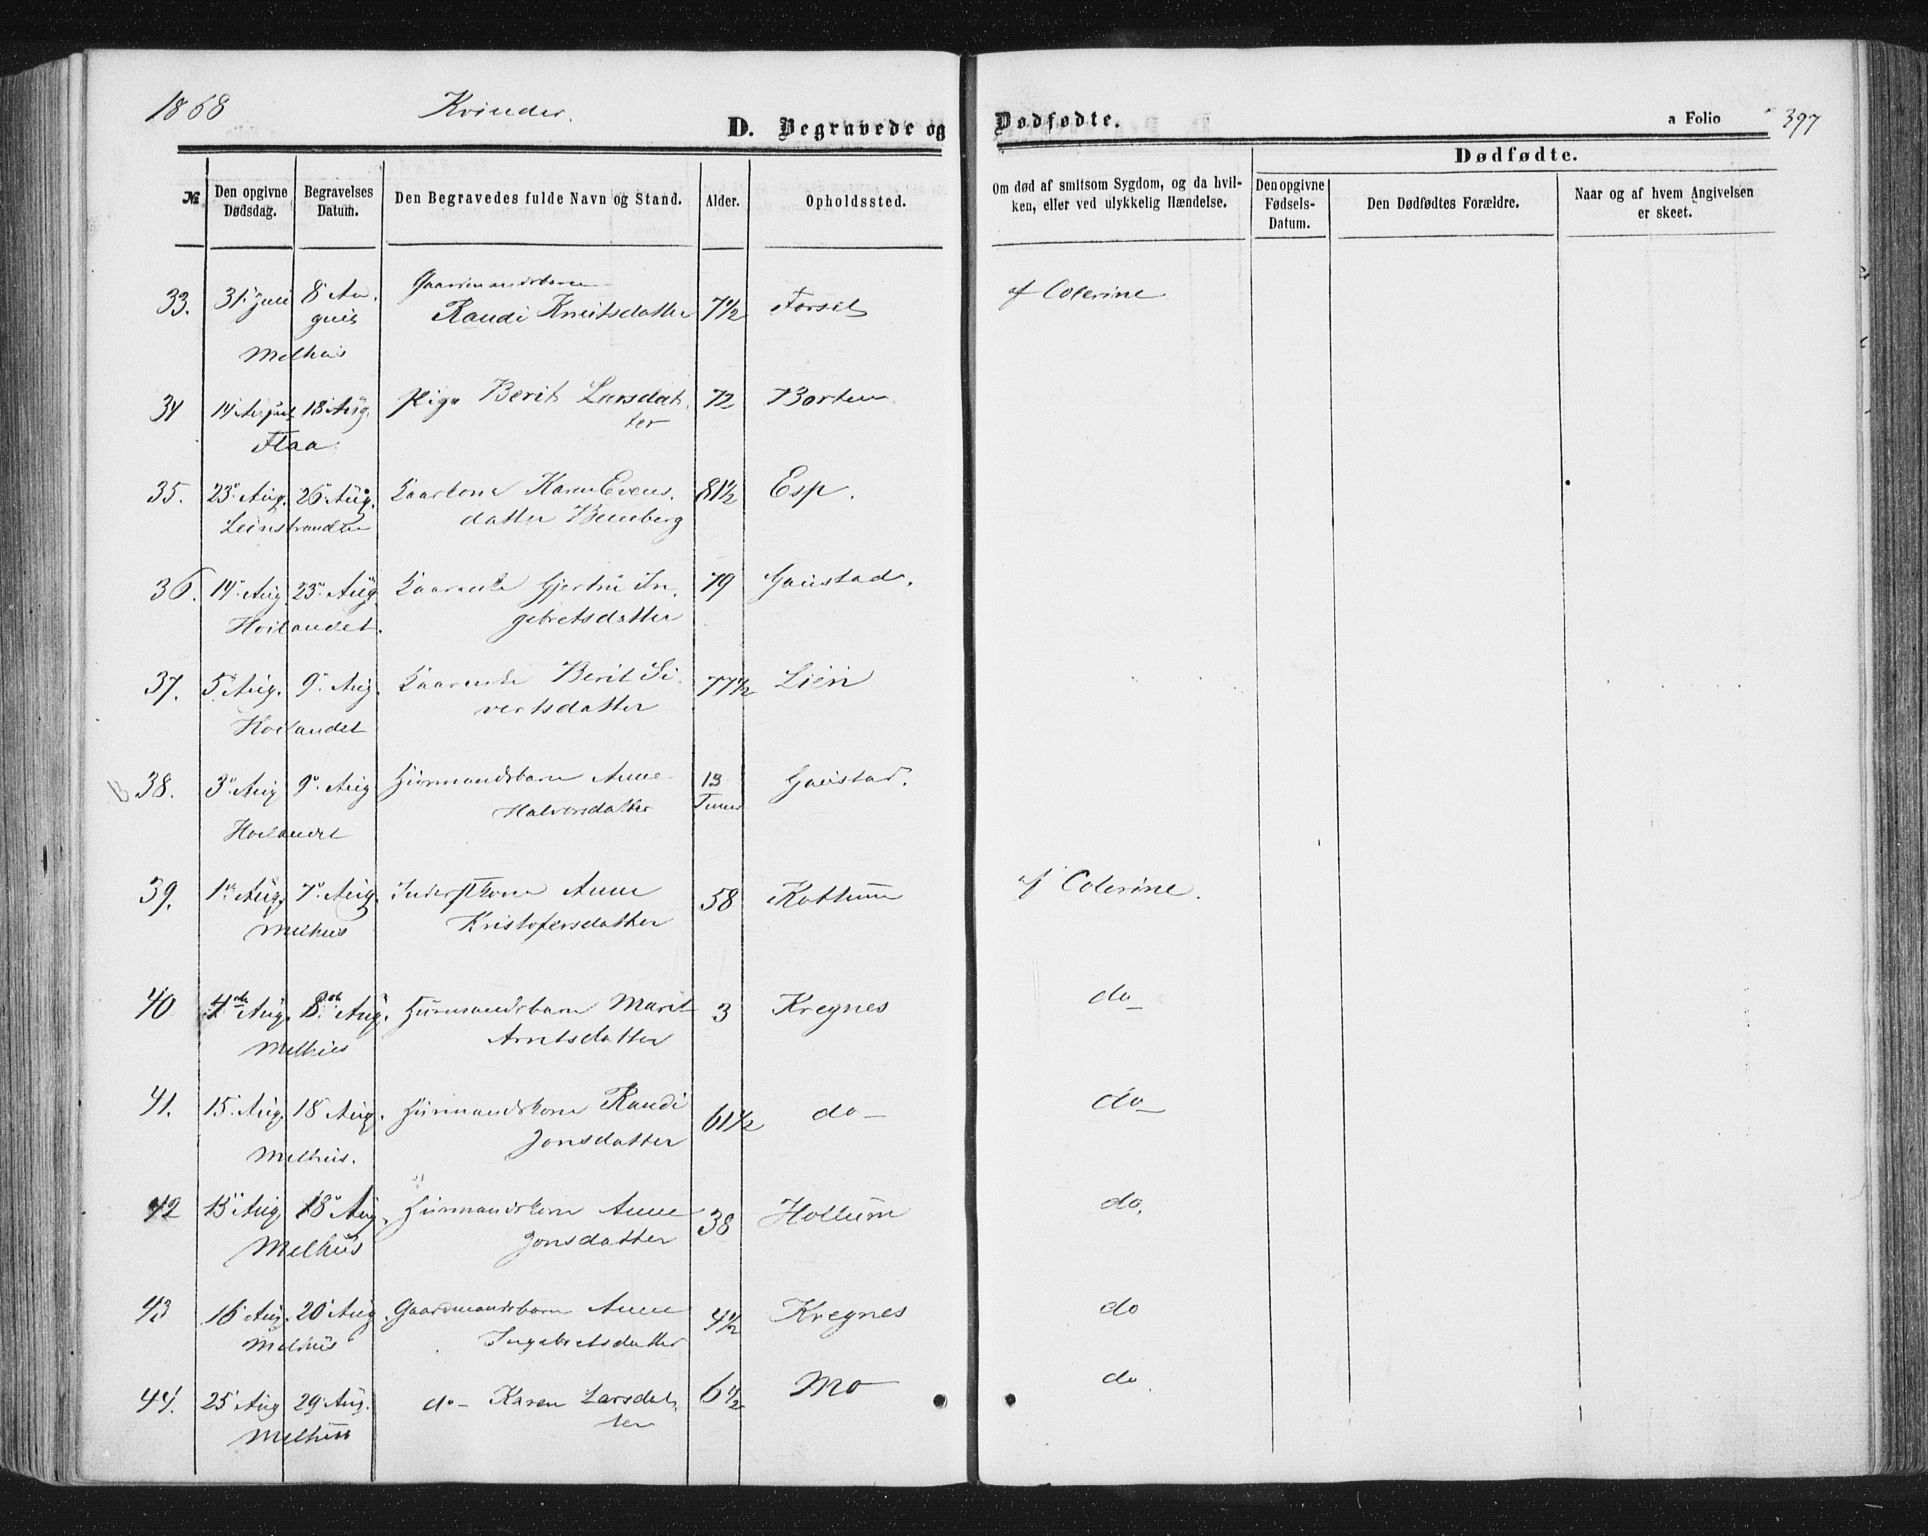 1868 Kvinder.
D. Begravede og Dødfødte.
a Folio 397
Dødfødte.
№ Den opgivne Dødsdag. Begravelses Datum. Den Begravedes fulde Navn og Stand. Alder. Opholdssted. Om død af smitsom Sygdom, og da hvilken, eller ved ulykkelig Hændelse. Den opgivne Fødsels-Datum. Den Dødfødtes Forældre. Naar og af hvem Angivelsen er skeet.
Gaardmandsbarn
33. 31 Juli 8 Au- Randi Knutsdatter 7 1/2 Forset af Colerine
gus
Melhus
34 14 August 18 Aug. Pige Berit Larsdat- 72 Borten
ter
Flaa.
35. 23 Aug. 26 Aug. Kaarkone Karen Evens- 81 1/2 Esp.
Leinstranden datter Benberg
36. 14 Aug. 23 Aug. Kaarenke Gjertru In- 79 Gaustad.
Hoilandet. gebretsdatter
37. 5 Aug. 9 Aug. Kaarenke Berit Si- 77 1/2 Lien
Hoilandet vertsdatter
38. 3 Aug 9 Aug Husmandsbarn Anne 13 Gaustad.
Halvorsdatter Timer
Hoilandet
39. 1 Aug. 7 Aug. Inderstkone Anne 58 Kottum af Colerine.
Melhus Kristofersdatter
40 4de Aug. 8de Aug. Husmandsbarn Marit 3 Kregnes do
Melhus Arntsdatter
41. 15 Aug. 18 Aug. Husmandskone Randi 61 1/2 do do
Melhus. Jonsdatter
42 15 Aug 18 Aug. Husmandskone Anne 38 Hollum do.
Melhus Jonsdatter
43 16 Aug. 20 Aug Gaardmandsbarn Anne 4 1/2 Kregnes do
Melhus Ingebretsdatter
44. 25 Aug 29 Aug. do Karen Larsdat- 6 1/2 Mo do
ter
Melhus